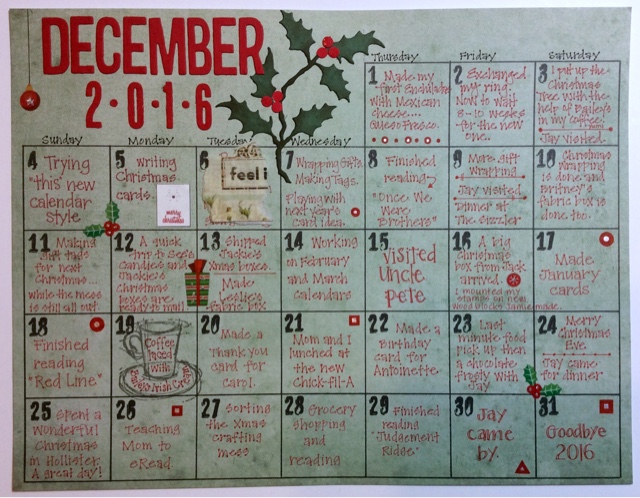 DECEMBER
2·0·1·6
Thursday
Friday
Saturday
1 Made my
first Enchiladas
with Mexican
cheese....
Queso Fresco.
2 Exchanged
my ring.
Now to wait
8-10 weeks
for the new
one.
3 I put up the
Christmas
Tree with the
help of Bailey's
in my coffee.
Jay visited.
Sunday
Monday
Tuesday
Wednesday
4 Trying
"this new
calendar
style
5 writing
Christmas
cards.
merry
christmas
6
feel i
7 Wrapping Gifts.
Making Tags.
Playing with
next year's
card idea.
8 Finished
reading
"Once We
Were
Brothers"
9 More Gift
Wrapping
Jay visited
Dinner at
The Sizzler
10 Christmas
wrapping
is done and
Britney's
fabric box is
done too.
11 Making
Gift tags
for next
Christmas...
while the mess
is still all out.
12 A quick
trip to See's
Candies and
Jackie's
Christmas
boxes are
ready to mail
13 Shipped
Jackie's
Xmas boxes.
Made
Leslie's
fabric box
14 Working
on February
and March
calendars
15
visited
Uncle
Pete
16 A big
Christmas
box from Jack
arrived.
I mounted my
stamps on new
wood blocks Jamie made.
17
Made
January
cards
18
Finished
reading
"Red Line"
19
Coffee
laced
with
Bailey's Irish Cream
20
Made a
Thank you
card for
Caryl.
21
Mom and I
lunched at
the new
Chick-fil-A
22 Made a
Birthday
card for
Antoinette
23 Last
minute food
pick up then
a chocolate
frosty with
Jay
24 Merry
Christmas
Eve.
Jay came
for dinner
25 Spent a
wonderful
Christmas
in Hollister.
A great day!
26
Teaching
Mom to
eRead.
27 Sorting
the Xmas
crafting
mess
28 Grocery
Shopping
and
reading
29 Finished
reading
"Judgement
Ridge."
30
Jay
came
by.
31
Goodbye
2016